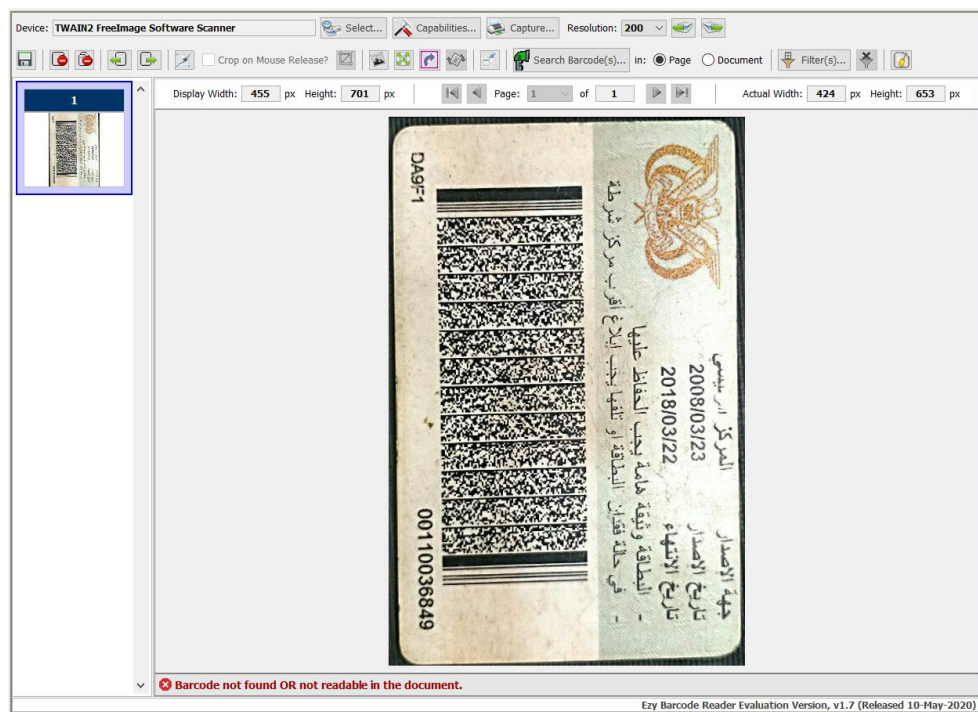 Device: TWAIN2 FreeImage Software Scanner Select... Capabilities... Capture... Resolution: 200
Crop on Mouse Release? Search Barcode(s)... in: Page Document Filter(s)...
1
Display Width: 455 px Height: 701 px Page: 1 of 1 Actual Width: 424 px Height: 653 px
جهة الاصدار المركز الرئيسي
تاريخ الإصدار 2008/03/23
تاريخ الإنتهاء 2018/03/22
- البطاقة وثيقة هامة يجب الحفاظ عليها
- في حالة فقدان البطاقة او تلفها يجب إبلاغ أقرب مركز شرطة
DA9F1
00110036849
Barcode not found OR not readable in the document.
Ezy Barcode Reader Evaluation Version, v1.7 (Released 10-May-2020)